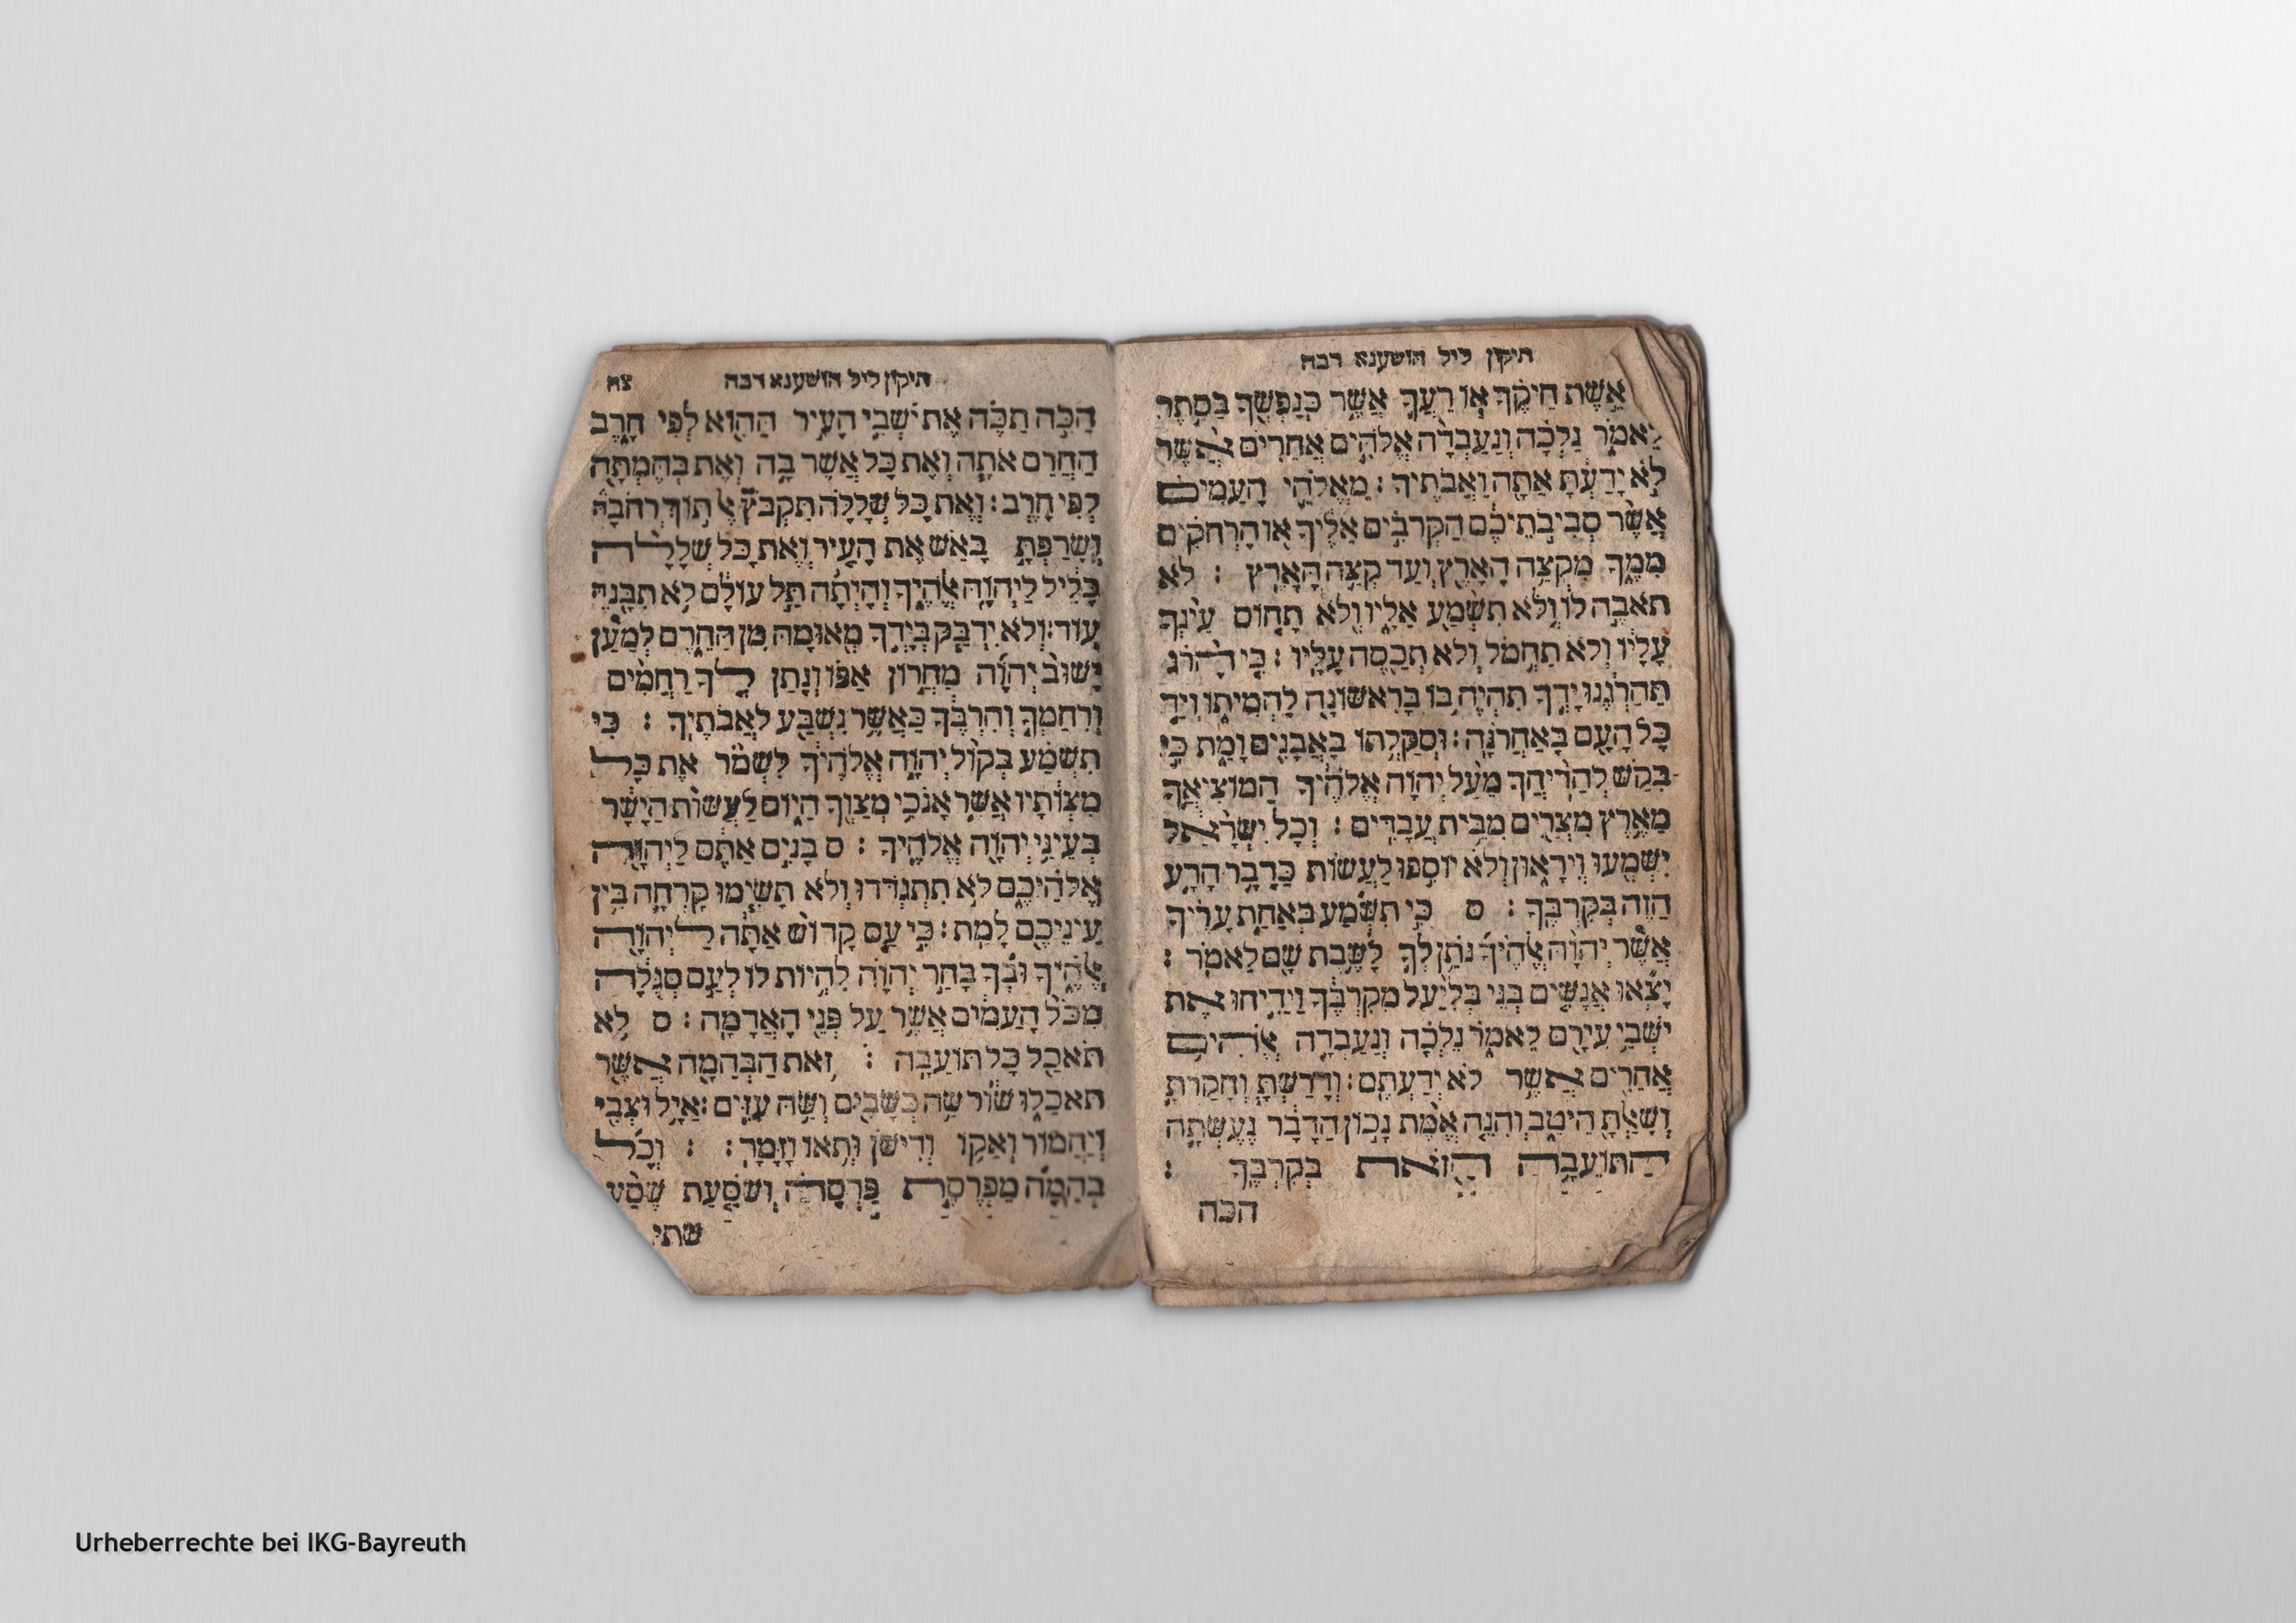 תיקון ליל הושענא רבה
אֵשֶׁת חֵיקֶךָ אוֹ רֵעֲךָ אֲשֶׁר כְּנַפְשְׁךָ בַּסֵּתֶר
לֵאמֹר נֵלְכָה וְנַעַבְדָה אֱלֹהִים אֲחֵרִים אֲשֶׁר
לֹא יָדַעְתָּ אַתָּה וַאֲבֹתֶיךָ : מֵאֱלֹהֵי הָעַמִּים
אֲשֶׁר סְבִיבֹתֵיכֶם הַקְּרֹבִים אֵלֶיךָ אוֹ הָרְחֹקִים
מִמֶּךָּ מִקְצֵה הָאָרֶץ וְעַד קְצֵה הָאָרֶץ : לֹא
תֹאבֶה לוֹ וְלֹא תִשְׁמַע אֵלָיו וְלֹא תָחוֹס עֵינְךָ
עָלָיו וְלֹא תַחְמֹל וְלֹא תְכַסֶּה עָלָיו : כִּי הָרֹג
תַּהַרְגֶנּוּ יָדְךָ תִּהְיֶה בּוֹ בָרִאשׁוֹנָה לַהֲמִיתוֹ וְיַד
כָּל הָעָם בָּאַחֲרֹנָה : וּסְקַלְתּוֹ בָאֲבָנִים וָמֵת כִּי
בִקֵּשׁ לְהַדִּיחֲךָ מֵעַל יְהוָה אֱלֹהֶיךָ הַמּוֹצִיאֲךָ
מֵאֶרֶץ מִצְרַיִם מִבֵּית עֲבָדִים : וְכָל יִשְׂרָאֵל
יִשְׁמְעוּ וְיִרָאוּן וְלֹא יוֹסִפוּ לַעֲשׂוֹת כַּדָּבָר הָרָע
הַזֶּה בְּקִרְבֶּךָ : ס כִּי תִשְׁמַע בְּאַחַת עָרֶיךָ
אֲשֶׁר יְהוָה אֱלֹהֶיךָ נֹתֵן לְךָ לָשֶׁבֶת שָׁם לֵאמֹר :
יָצְאוּ אֲנָשִׁים בְּנֵי בְלִיַּעַל מִקִּרְבֶּךָ וַיַּדִּיחוּ אֶת
יֹשְׁבֵי עִירָם לֵאמֹר נֵלְכָה וְנַעַבְדָה אֱלֹהִים
אֲחֵרִים אֲשֶׁר לֹא יְדַעְתֶּם : וְדָרַשְׁתָּ וְחָקַרְתָּ
וְשָׁאַלְתָּ הֵיטֵב וְהִנֵּה אֱמֶת נָכוֹן הַדָּבָר נֶעֶשְׂתָה
הַתּוֹעֵבָה הַזֹּאת בְּקִרְבֶּךָ :
הכה
תיקון ליל הושענא רבה צח
הַכֵּה תַכֶּה אֶת יֹשְׁבֵי הָעִיר הַהוּא לְפִי חָרֶב
הַחֲרֵם אֹתָהּ וְאֶת כָּל אֲשֶׁר בָּהּ וְאֶת בְּהֶמְתָּהּ
לְפִי חָרֶב : וְאֶת כָּל שְׁלָלָהּ תִּקְבֹּץ אֶל תּוֹךְ רְחֹבָהּ
וְשָׂרַפְתָּ בָאֵשׁ אֶת הָעִיר וְאֶת כָּל שְׁלָלָהּ
כָּלִיל לַיהוָה אֱלֹהֶיךָ וְהָיְתָה תֵּל עוֹלָם לֹא תִבָּנֶה
עוֹד : וְלֹא יִדְבַּק בְּיָדְךָ מְאוּמָה מִן הַחֵרֶם לְמַעַן
יָשׁוּב יְהוָה מֵחֲרוֹן אַפּוֹ וְנָתַן לְךָ רַחֲמִים
וְרִחַמְךָ וְהִרְבֶּךָ כַּאֲשֶׁר נִשְׁבַּע לַאֲבֹתֶיךָ : כִּי
תִשְׁמַע בְּקוֹל יְהוָה אֱלֹהֶיךָ לִשְׁמֹר אֶת כָּל
מִצְוֹתָיו אֲשֶׁר אָנֹכִי מְצַוְּךָ הַיּוֹם לַעֲשׂוֹת הַיָּשָׁר
בְּעֵינֵי יְהוָה אֱלֹהֶיךָ : ס בָּנִים אַתֶּם לַיהוָה
אֱלֹהֵיכֶם לֹא תִתְגֹּדְדוּ וְלֹא תָשִׂימוּ קָרְחָה בֵּין
עֵינֵיכֶם לָמֵת : כִּי עַם קָדוֹשׁ אַתָּה לַיהוָה
אֱלֹהֶיךָ וּבְךָ בָּחַר יְהוָה לִהְיוֹת לוֹ לְעַם סְגֻלָּה
מִכֹּל הָעַמִּים אֲשֶׁר עַל פְּנֵי הָאֲדָמָה : ס לֹא
תֹאכַל כָּל תּוֹעֵבָה : זֹאת הַבְּהֵמָה אֲשֶׁר
תֹּאכֵלוּ שׁוֹר שֵׂה כְשָׂבִים וְשֵׂה עִזִּים : אַיָּל וּצְבִי
וְיַחְמוּר וְאַקּוֹ וְדִישֹׁן וּתְאוֹ וָזָמֶר : : וְכָל
בְּהֵמָה מַפְרֶסֶת פַּרְסָה וְשֹׁסַעַת שֶׁסַע
שתי
Urheberrechte bei IKG-Bayreuth